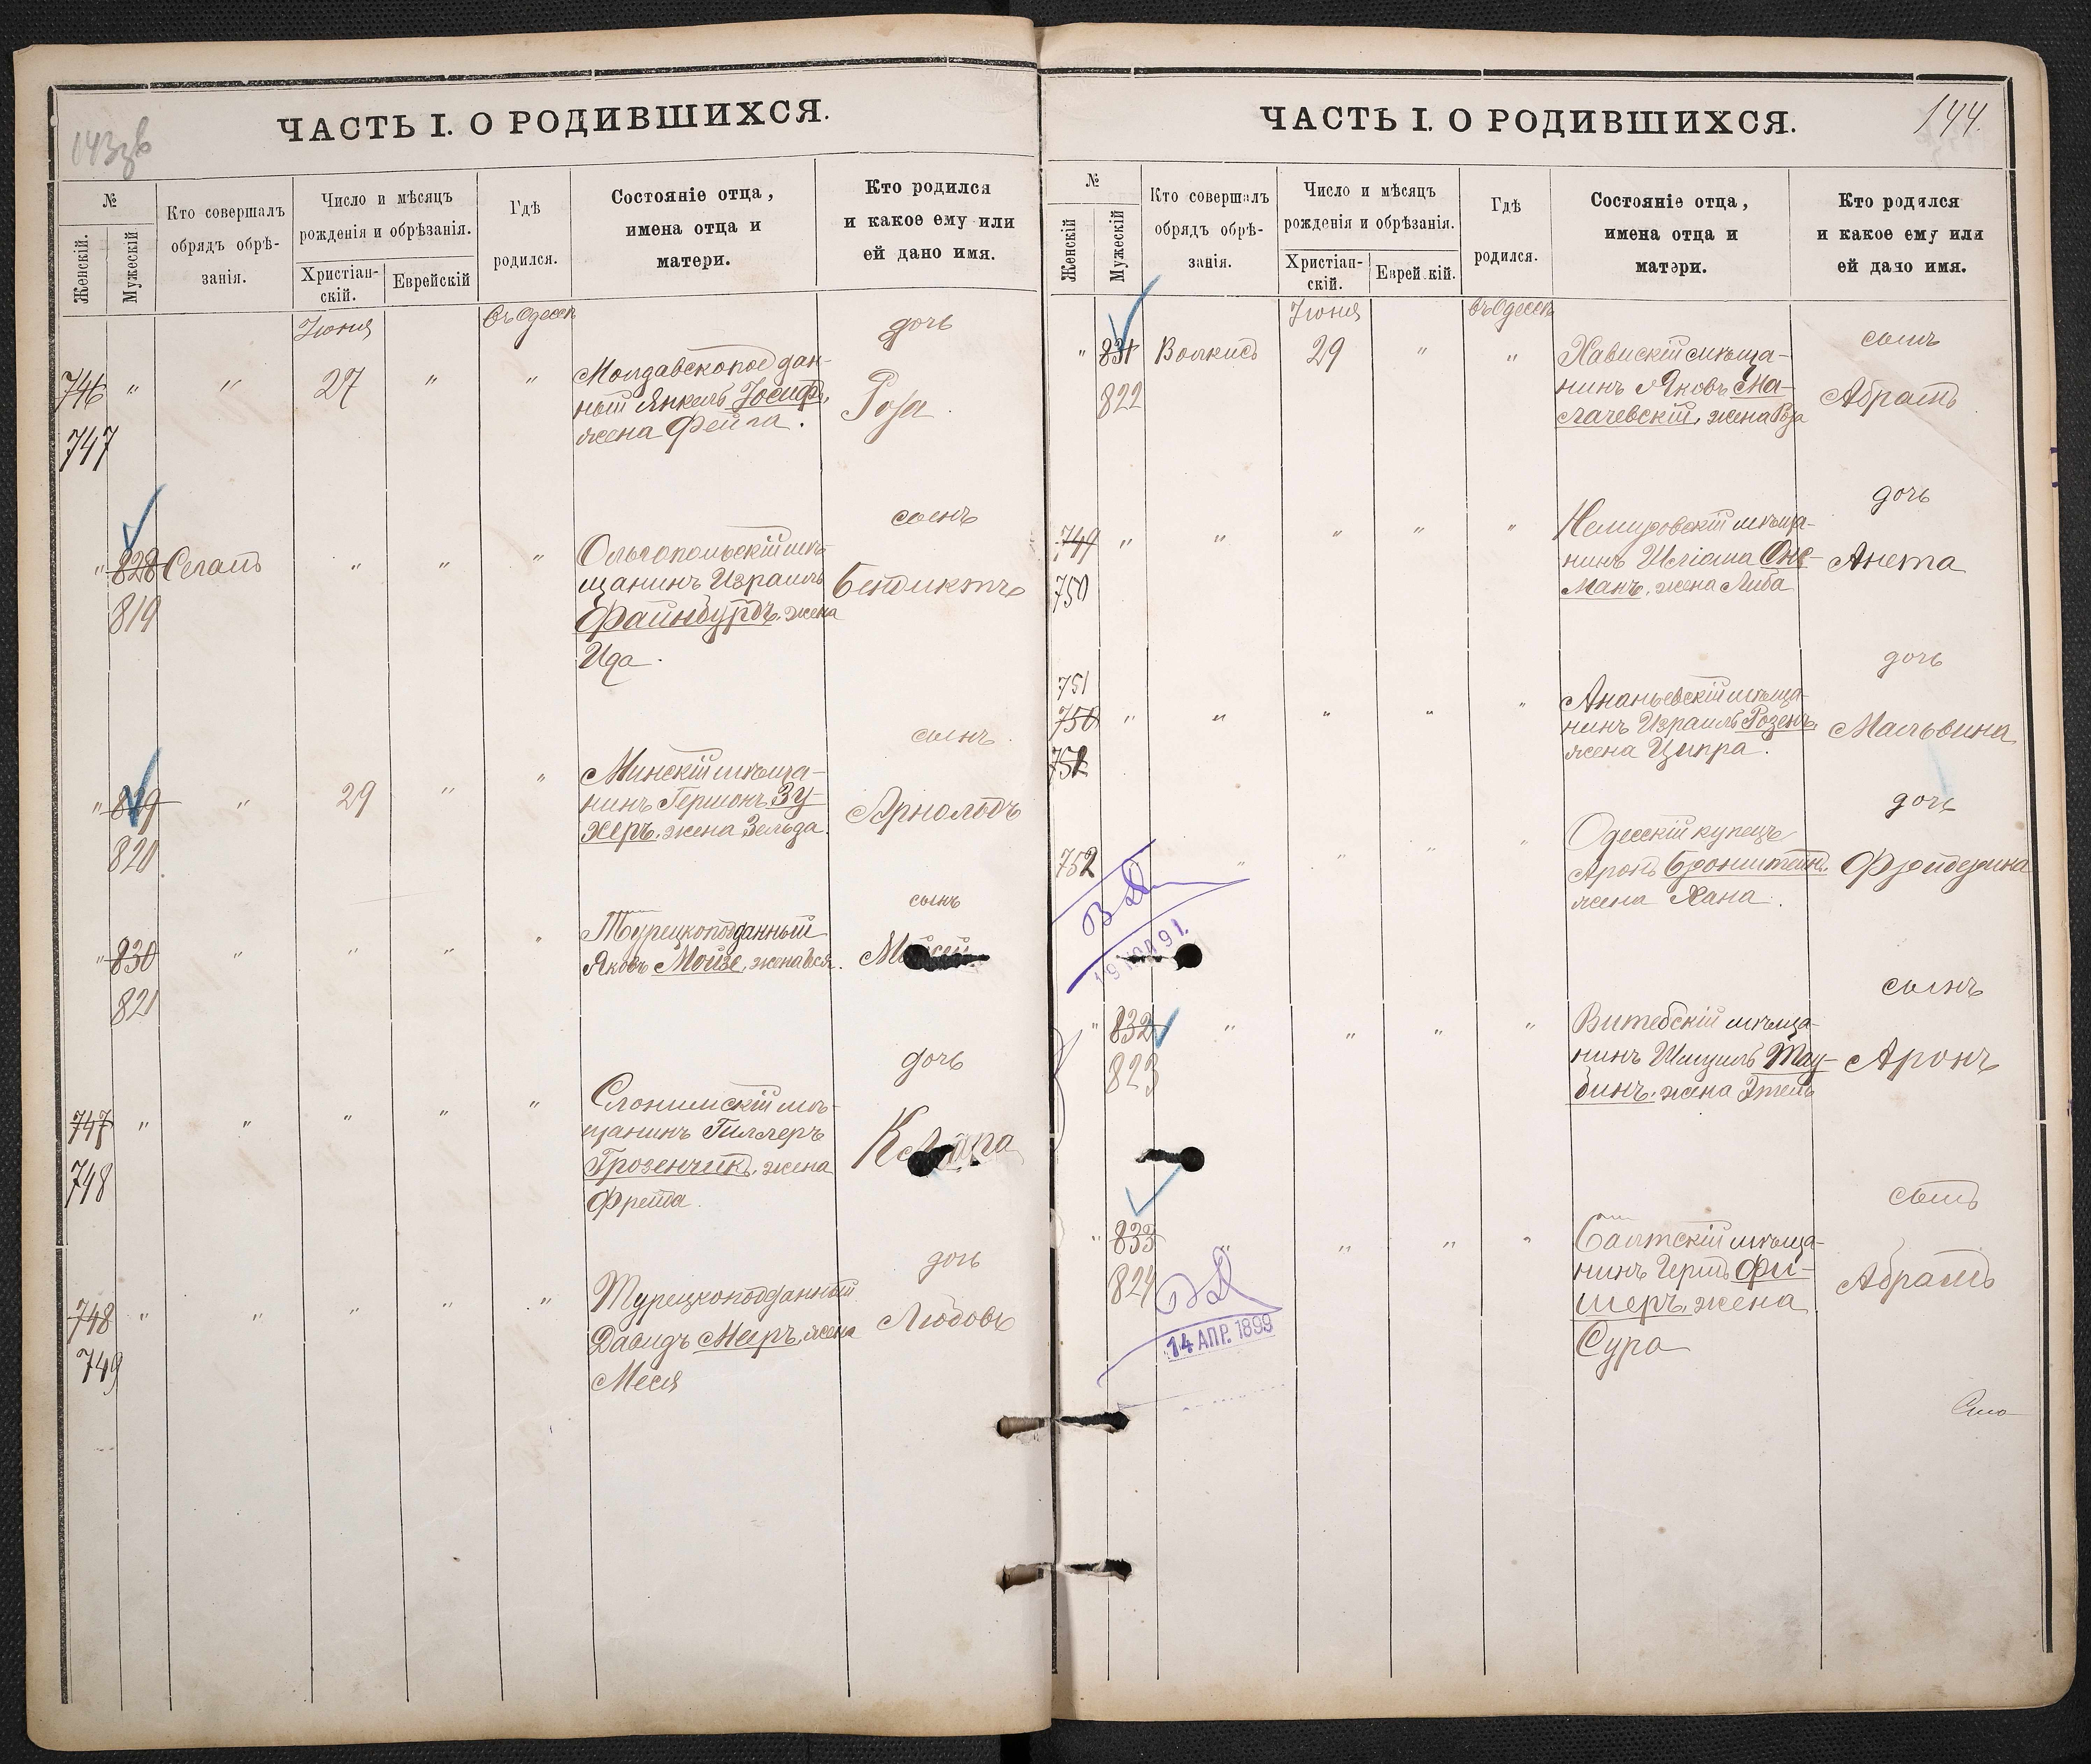 143 зв
ЧАСТЬ I. О РОДИВШИХСЯ.
№
Женскій.
Мужескій
Кто совершалъ
обрядъ обрѣ-
занія.
Число и мѣсяцъ
рожденія и обрѣзанія.
Христіан-
скій.
Еврейскій
Гдѣ
родился.
Состояніе отца,
имена отца и
матери.
Кто родился
и какое ему или
ей дано имя.
Іюня
въ Одессѣ
дочь
746 " " 27 " "
747
Молдавскопод дан-
ный Янкель Іосифъ,
жена Фейга.
Роза
сынъ
" 828 " " "
819
Ольгопольскій мѣ-
щанинъ Израиль
Файнбурдъ, жена
Ида.
Бендиктъ
сынъ
" 829 " 29 " "
820
Минскій мѣща-
нинъ Гершонъ Зу-
херъ, жена Зельда.
Арнольдъ
сынъ
" 830 " " " "
821
Турецкоподданный
Яковъ Моизе, жена
дочь
747 " " " " "
748
Слонимскій мѣ-
щанинъ Гиллеръ
Грозенчикъ, жена
Фрейда.
Клара
дочь
748 " " " " "
749
Турецкоподданный
Давидъ Мееръ, жена
Меся
Любовь
ЧАСТЬ I. О РОДИВШИХСЯ.
144.
№
Женскій
Мужескій
Кто совершалъ
обрядъ обрѣ-
занія.
Число и мѣсяцъ
рожденія и обрѣзанія.
Христіан-
скій.
Еврей кій.
Гдѣ
родился.
Состояніе отца,
имена отца и
матери.
Кто родился
и какое ему или
ей дано имя.
Іюня
въ Одессѣ
сынъ
" 831 Волкисъ 29 " "
822
мѣща-
нинъ Яковъ Ма-
лачевскій, жена Роза
Абрамъ
дочь
749 " " " " "
750
Немировскій мѣща-
нинъ
манъ, жена Либа
Анета
дочь
751
750 " " " " "
752
Ананьевскій мѣща-
нинъ Израиль Розенъ,
жена Ципра.
Мальвина
дочь
752 " " " "
Одесскій купецъ
Аронъ Бронштейнъ,
жена Хана.
Фрейдерика
19 91.
сынъ
" 832 " " " "
823
Витебскій мѣща-
нинъ Шмуиль Тау-
бинъ, жена Этель
Аронъ
сынъ
" 833 " " " "
824
Балтскій мѣща-
нинъ Гершъ Фи-
шеръ, жена
Сура
Абрамъ
14 АПР. 1899